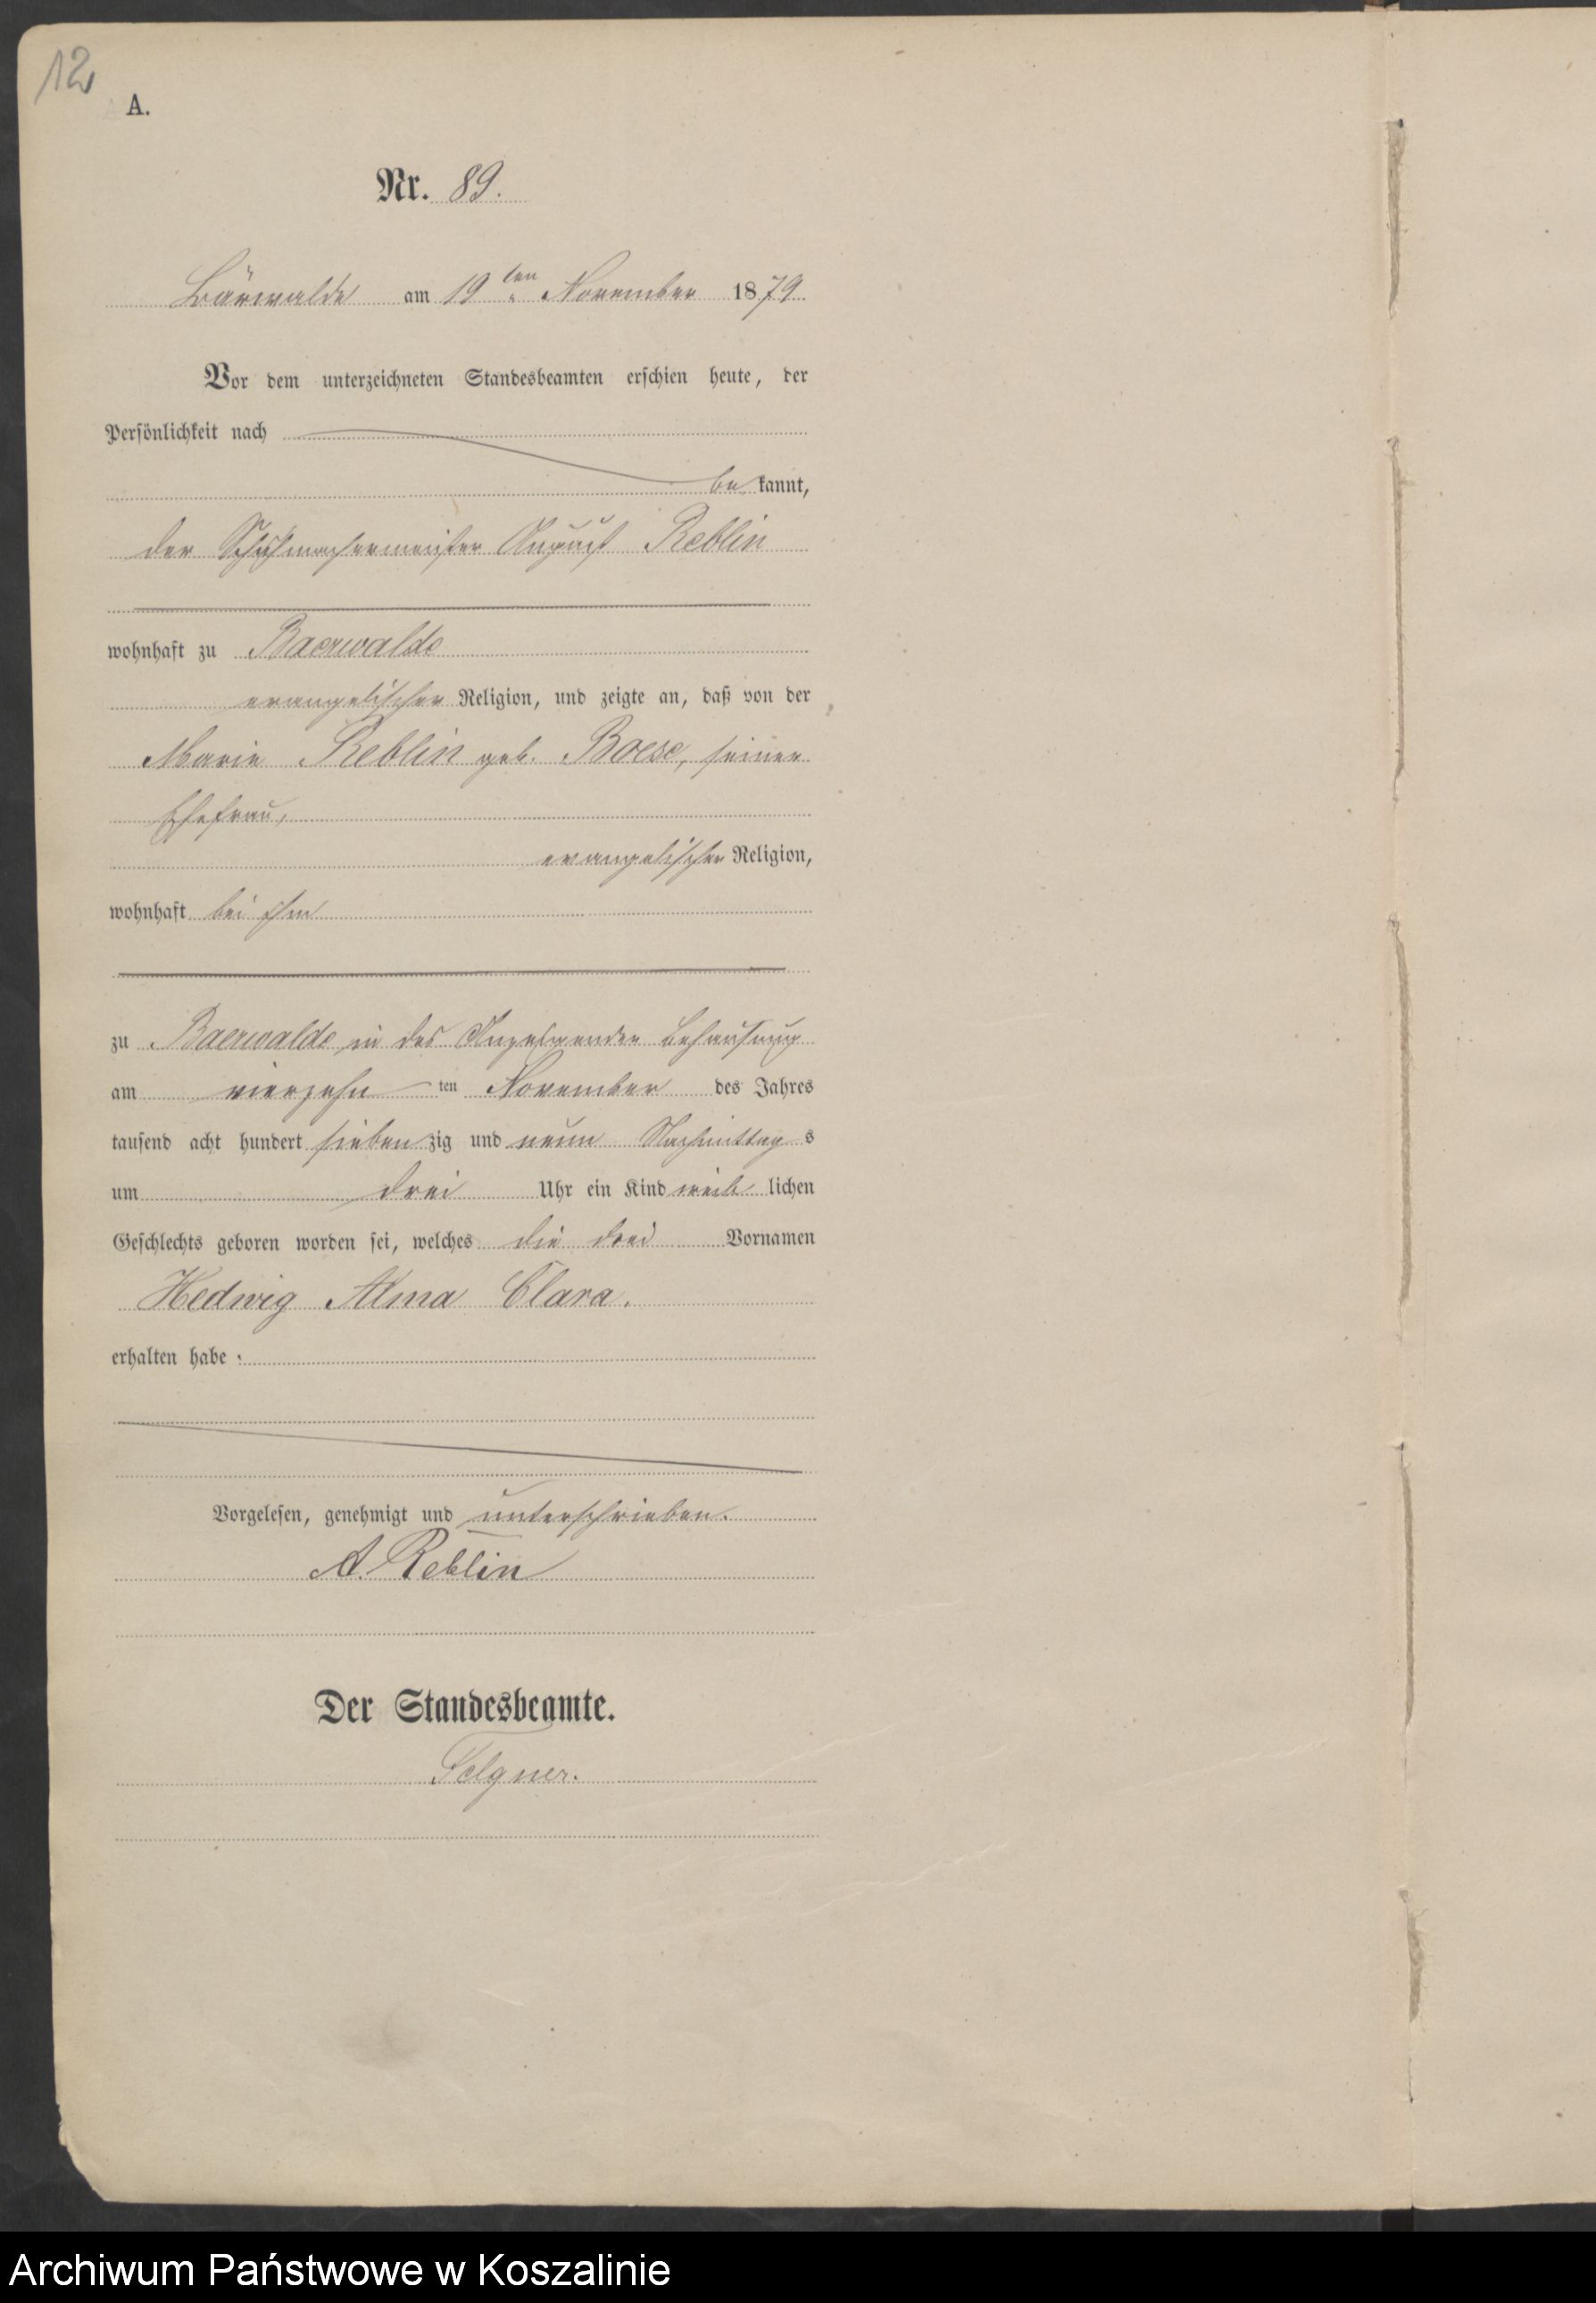 12
A.
Nr. 89.
Bärwalde am 19ten November 1879.
Vor dem unterzeichneten Standesbeamten erschien heute, der
Persönlichkeit nach
be kannt,
der Schuhmachermeister August Reblin
wohnhaft zu Baerwalde
evangelischer Religion, und zeigte an, daß von der
Marie Reblin geb. Boese, seiner
Ehefrau,
evangelischer Religion,
wohnhaft bei ihm
zu Baerwalde in des Anzeigenden Behausung
am vierzehn ten November des Jahres
tausend acht hundert sieben zig und neun Nachmittag s
um drei Uhr ein Kind weib lichen
Geschlechts geboren worden sei, welches die drei Vornamen
Hedwig Alma Clara.
erhalten habe.
Vorgelesen, genehmigt und unterschrieben.
A. Reblin
Der Standesbeamte.
Felgner.
Archiwum Państwowe w Koszalinie